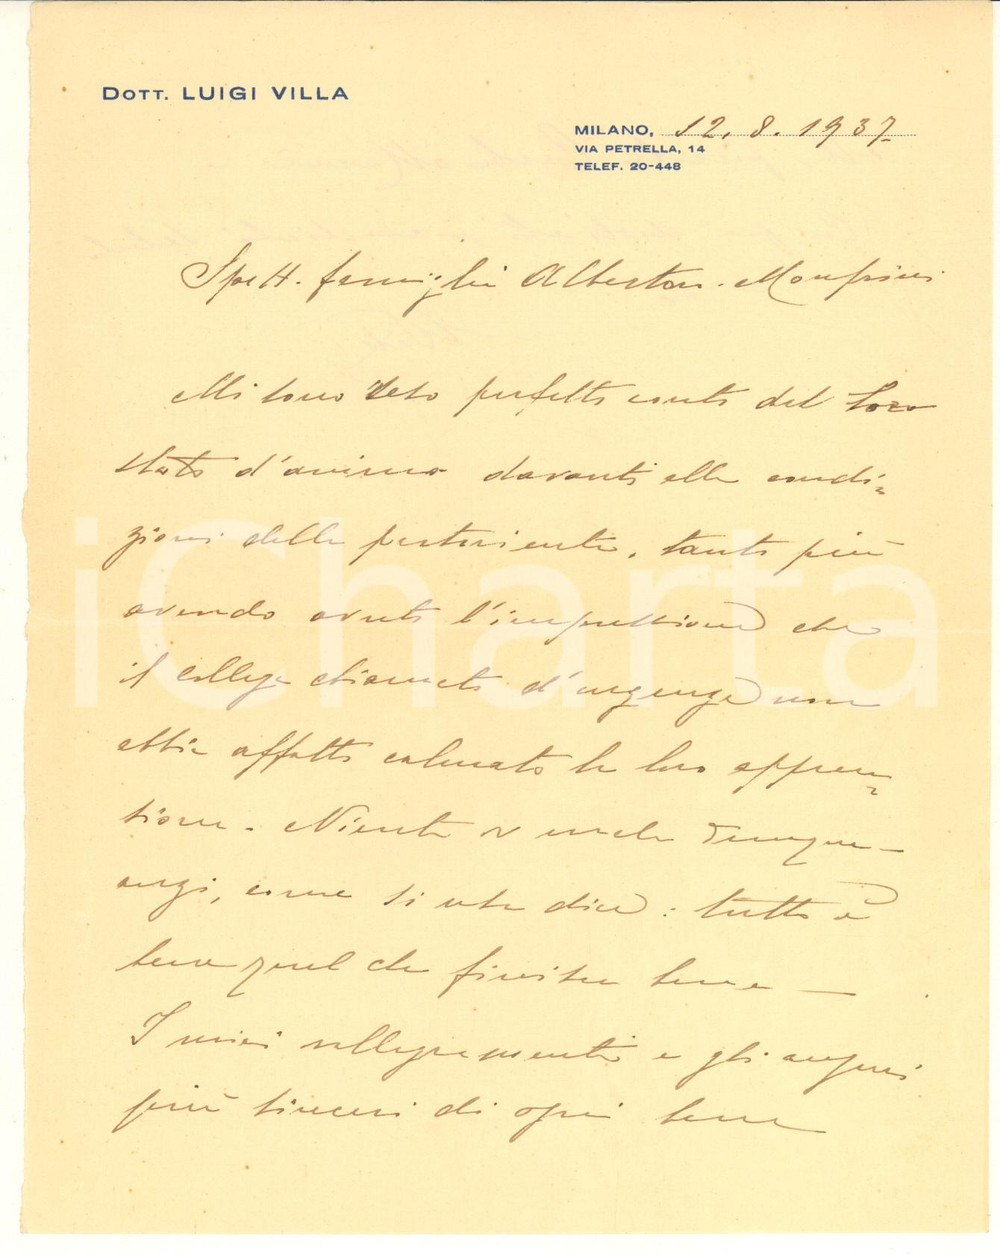 DOTT. LUIGI VILLA
MILANO, 12. 8. 1937
VIA PETRELLA, 14
TELEF. 20-448
Spett. famiglia Albertoni - Monfrini
Mi sono reso perfetto conto del loro
stato d'animo davanti alle condi=
zioni della partoriente, tanto più
avendo avuto l'impressione che
il collega chiamato d'urgenza non
abbia affatto calmato la loro appren=
sione. Niente male dunque -
anzi, come si suol dire: tutto è
bene quel che finisce bene -
I miei rallegramenti e gli auguri
più sinceri di ogni bene
iCharta